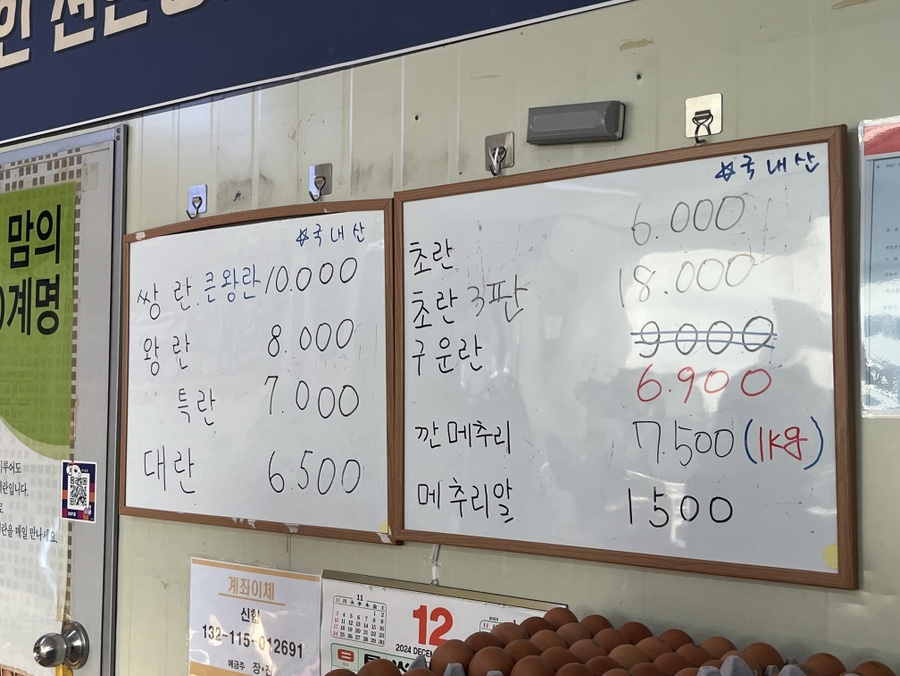 맘의
계명
란입니다.
란을 매일 만나세요.
※국내산
쌍란.큰왕란 10.000
왕란 8.000
특란 7.000
대란 6.500
※국내산
초란 6.000
초란 3판 18.000
구운란 9000
6.900
깐메추리 7.500 (1kg)
메추리알 1500
계좌이체
신협
132-115-012691
예금주 장*진
11
12
2024 DECEM